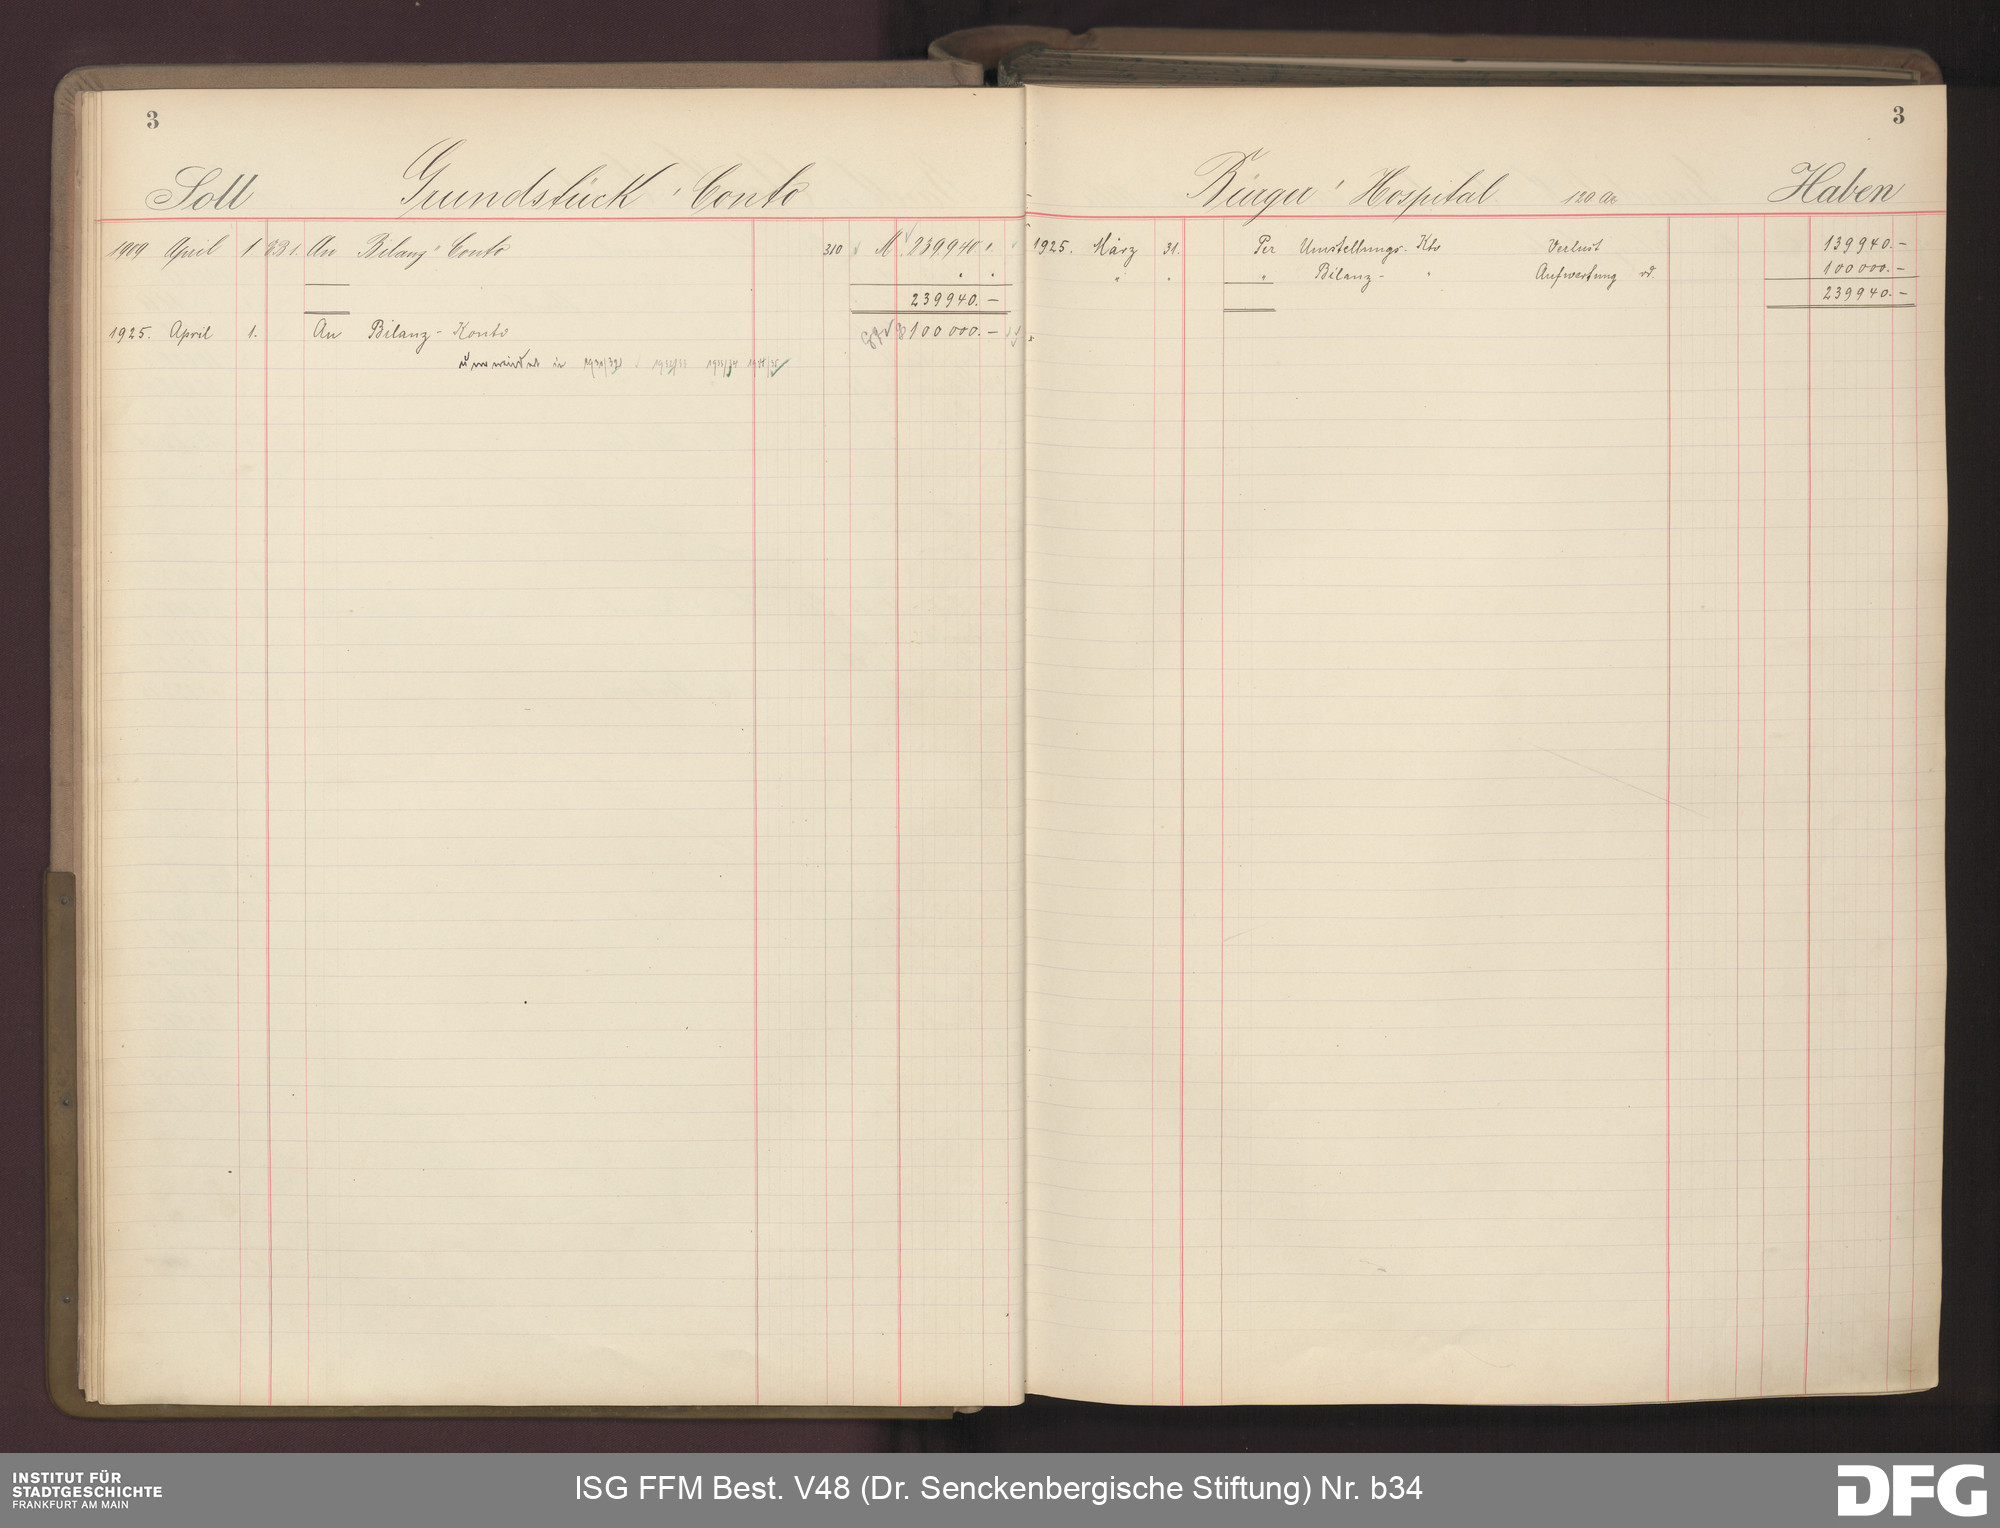 3
Soll Grundstück-Conto
1909 April 1 An Bilanz-Conto 310 M. 239940.
239940.-
1925. April 1. An Bilanz-Konto 100000.-
unverändert in 1931/32 1932/33 1933/34
3
Bürger-Hospital 120 Ar Haben
1925. März 31. Per Umstellungs-Kto Verlust 139940.-
" " " Bilanz- " Aufwertung rd. 100000.-
239940.-
INSTITUT FÜR
STADTGESCHICHTE
FRANKFURT AM MAIN
ISG FFM Best. V48 (Dr. Senckenbergische Stiftung) Nr. b34
DFG